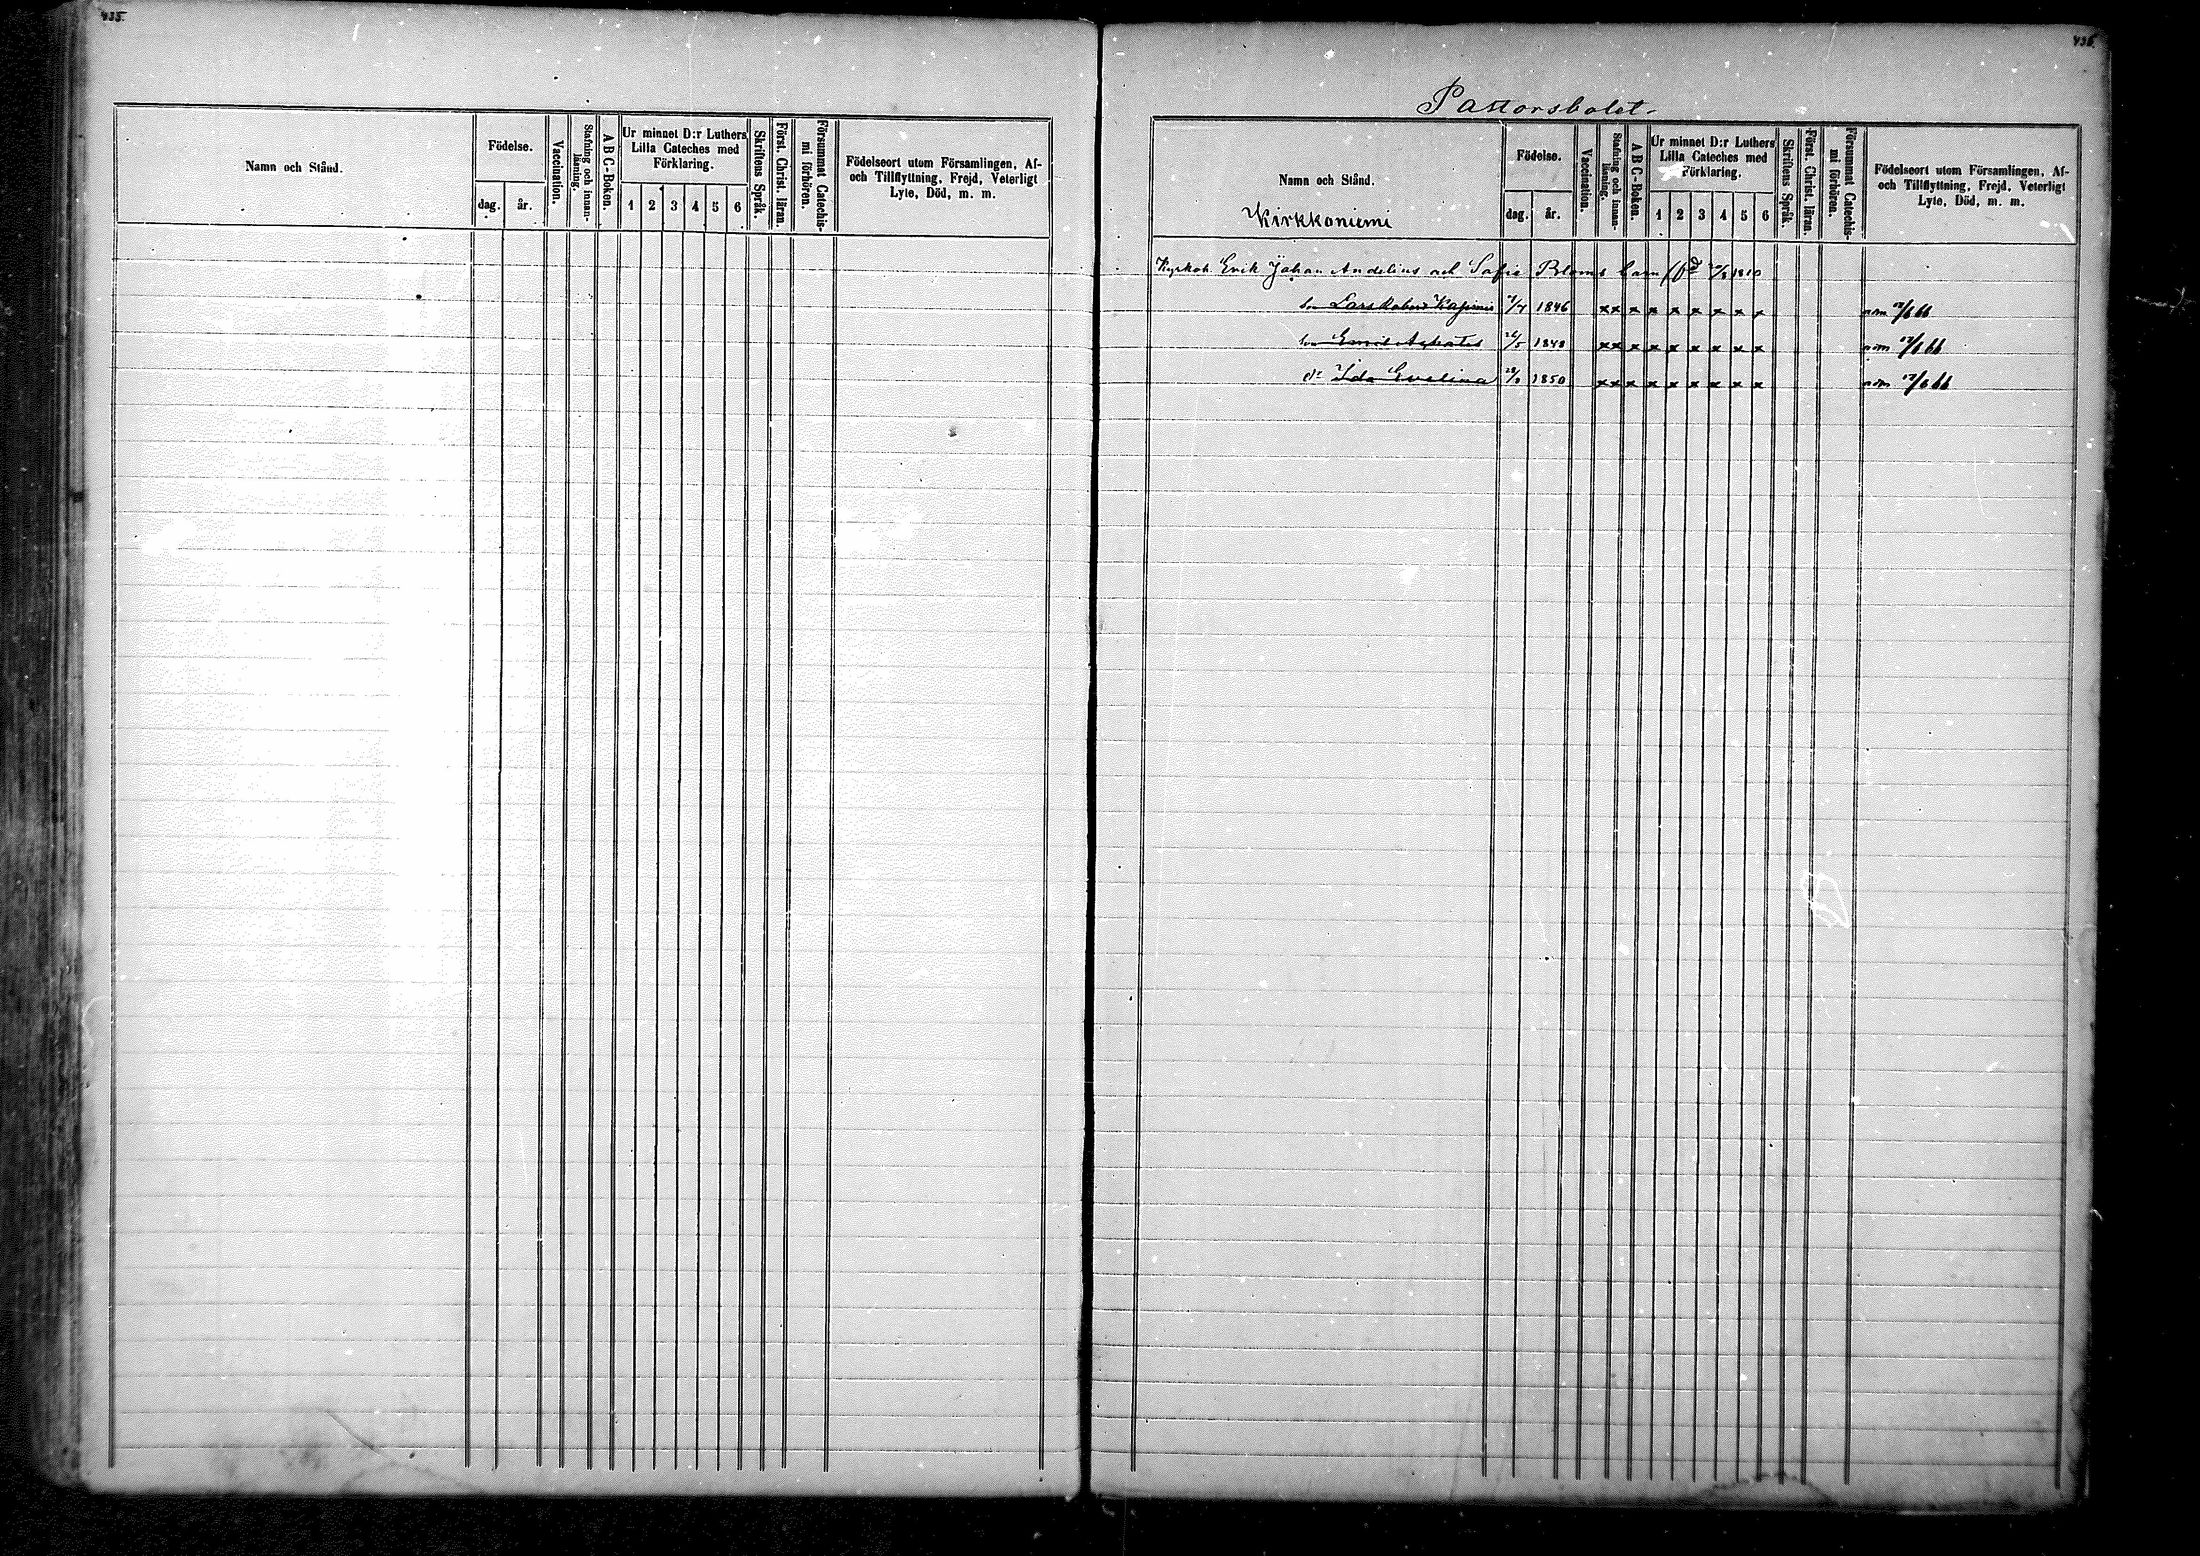 435.
Namn och Stånd.
Födelse.
dag.
år.
Vaccination.
Stafning och innan-
läsning.
A B C-Boken.
Ur minnet D:r Luthers
Lilla Cateches med
Förklaring.
1 2 3 4 5 6
Skriftens Språk.
Först. Christ. läran.
Försummat Catechis-
mi förhören.
Födelseort utom Församlingen, Af-
och Tillflyttning, Frejd, Veterligt
Lyte, Död, m. m.
436.
Pastorsbolet
Namn och Stånd.
Kirkkoniemi
Födelse.
dag.
år.
Vaccination.
Stafning och innan-
läsning.
A B C-Boken.
Ur minnet D:r Luthers
Lilla Cateches med
Förklaring.
1 2 3 4 5 6
Skriftens Språk.
Först. Christ. läran.
Försummat Catechis-
mi förhören.
Födelseort utom Församlingen, Af-
och Tillflyttning, Frejd, Veterligt
Lyte, Död, m. m.
Kyrkoh. Erik Johan Andelius och Sofia Bloms barn 1810
Lars Robert 1846 x x x x x x x x x
Emil 1848 x x x x x x x x x
dr Ida Evelina 1850 x x x x x x x x x